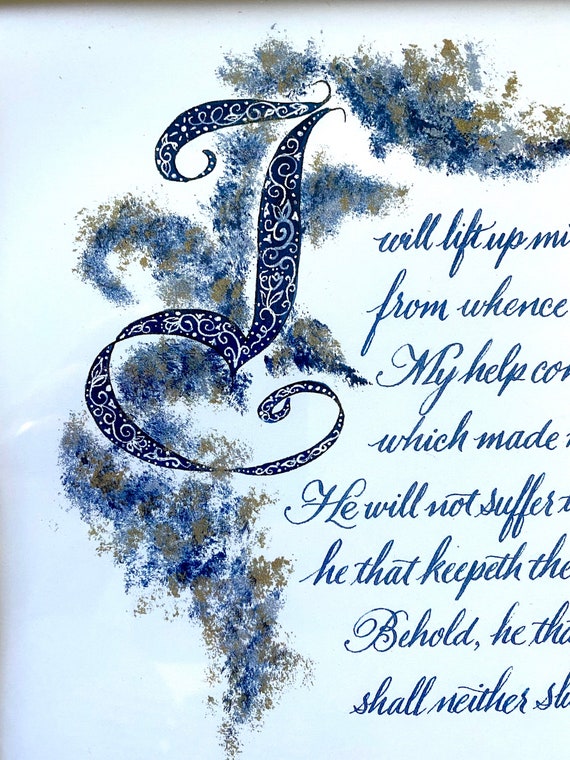 I
will lift up mi
from whence
My help con
which made
He will not suffer t
he that keepeth the
Behold, he tha
shall neither slu